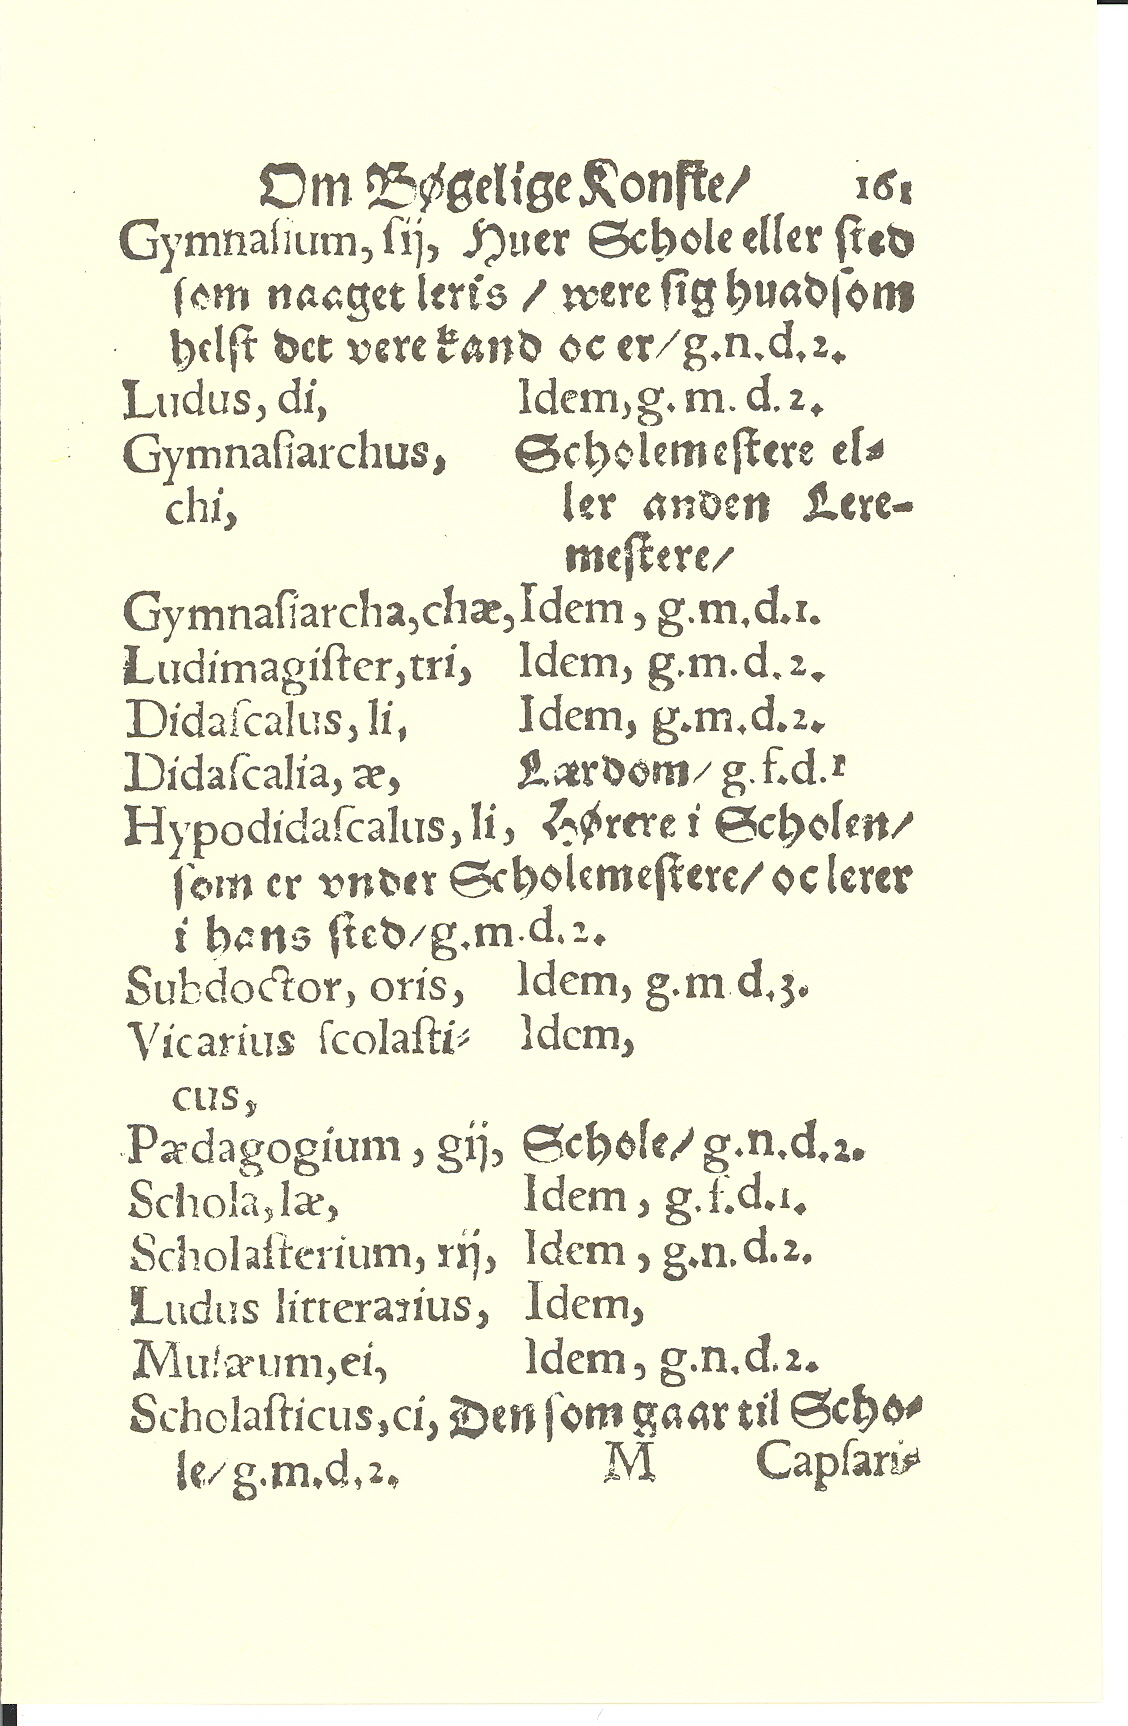 Om Bøgelige Konſte/ 161
Gymnaſium, ſij, Huer Schole eller ſted
ſom naaget leris / were ſig huadſom
helſt det vere kand oc er/ g.n.d.2.
Ludus, di, Idem, g. m. d. 2.
Gymnaſiarchus, Scholemeſtere el⸗
chi, ler anden Lere-
meſtere/
Gymnaſiarcha, chæ, Idem, g.m.d.1.
Ludimagiſter, tri, Idem, g.m.d.2.
Didaſcalus, li, Idem, g.m.d.2.
Didaſcalia, æ, Lærdom/ g.f.d.1
Hypodidaſcalus, li, Hørere i Scholen/
ſom er vnder Scholemeſtere/ oc lerer
i hans ſted/ g.m.d.2.
Subdoctor, oris, Idem, g.m d.3.
Vicarius ſcolaſti⸗ Idem,
cus,
Pædagogium, gij, Schole/ g.n.d.2.
Schola, læ, Idem, g.f.d.1.
Scholaſterium, rij, Idem, g.n.d.2.
Ludus litterarius, Idem,
Muſæum, ei, Idem, g.n.d.2.
Scholaſticus, ci, Den ſom gaar til Scho⸗
le/ g.m.d.2. M Capſari⸗